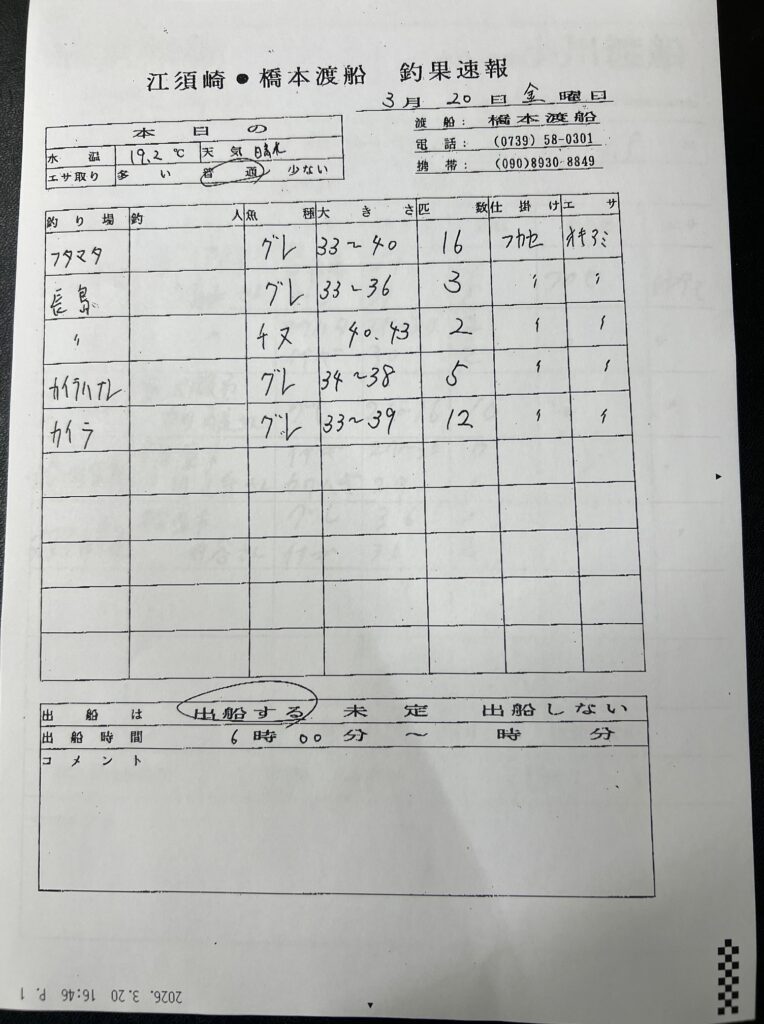 江須崎●橋本渡船 釣果速報
3月 20 日 金 曜日
渡船: 橋本渡船
電話: (0739) 58-0301
携帯: (090)8930-8849
本日の
水温 19.2 ℃ 天気 晴れ
エサ取り 多い 普通 少ない
釣り場 釣人 魚種 大きさ 匹数 仕掛け エサ
フタマタ グレ 33～40 16 フカセ オキアミ
長島 グレ 33～36 3 〃 〃
〃 チヌ 40.43 2 〃 〃
カイラハナレ グレ 34～38 5 〃 〃
カイラ グレ 33～39 12 〃 〃
出船は 出船する 未定 出船しない
出船時間 6時 00分 ～ 時 分
コメント
2026. 3.20 16:46 P. 1